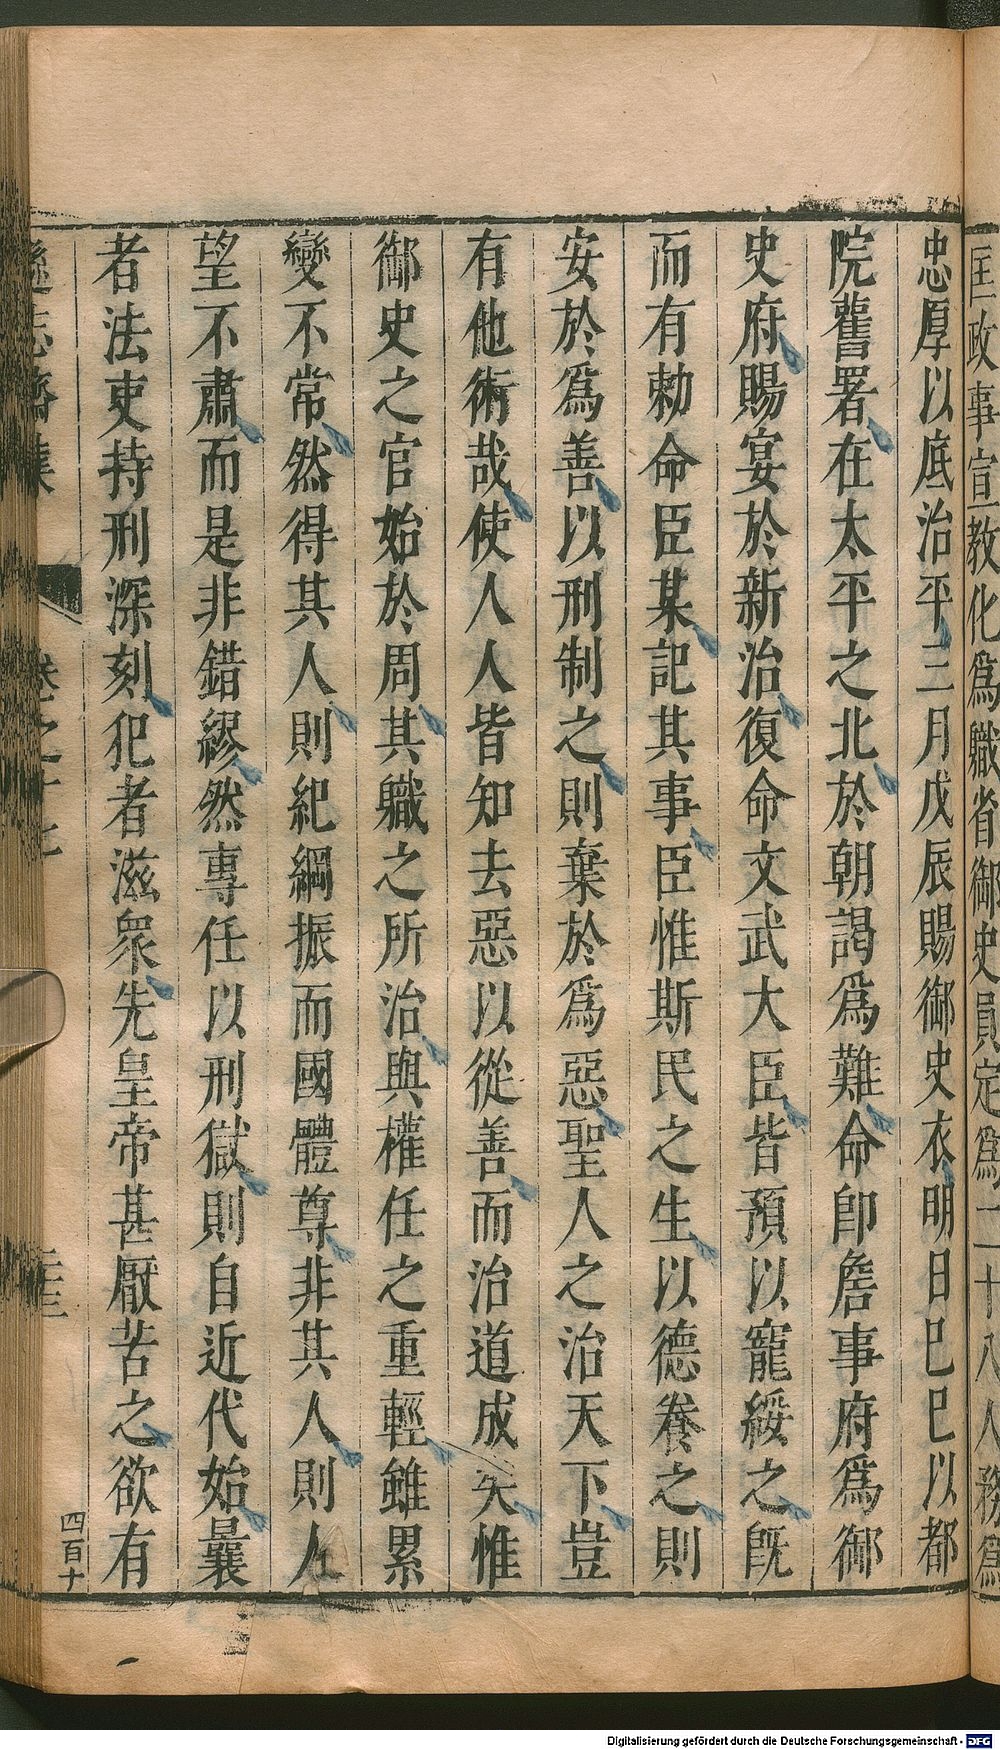 匡政事宣教化爲職省御史員定爲二十八人務爲
忠厚以底治平三月戊辰賜御史衣明日巳巳以都
院舊署在太平之北於朝謁爲難命卽詹事府爲御
史府賜宴於新治復命文武大臣皆預以寵綏之旣
而有勅命臣某記其事臣惟斯民之生以德養之則
安於爲善以刑制之則棄於爲惡聖人之治天下豈
有他術哉使人人皆知去惡以從善而治道成矣惟
御史之官始於周其職之所治與權任之重輕雖累
變不常然得其人則紀綱振而國體尊非其人則人
望不肅而是非錯繆然專任以刑獄則自近代始曩
者法吏持刑深刻犯者滋衆先皇帝甚厭苦之欲有
遜志齋集 卷之十七 二三 四百十
Digitalisierung gefördert durch die Deutsche Forschungsgemeinschaft - DFG